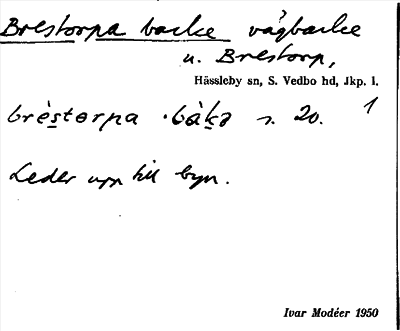 Brestorpa backe vägbacke
u. Brestorp,
Hässleby sn, S. Vedbo hd, Jkp. l.
brèstorpa ·bàkə s. 20. 1
Leder upp till byn.
Ivar Modéer 1950